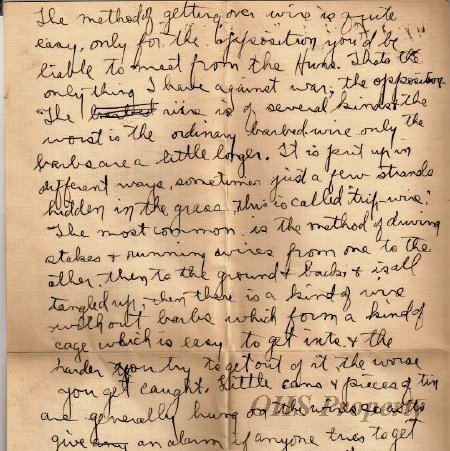 The method of getting over wire is quite
easy, only for the opposition you'd be
liable to meet from the Huns. Thats the
only thing I have against war, the opposition.
The barbed wire is of several kinds & the
worst is the ordinary barbed wire only the
barbs are a little longer. It is put up in
different ways, sometimes just a few strands
hidden in the grass, this is called "trip-wire."
The most common is the method of driving
stakes & running wires from one to the
other, then to the ground & back & is all
tangled up, then there is a kind of wire
without barbs which form a kind of
cage which is easy to get into & the
harder you try to get out of it the worse
you get caught. Little cans & pieces of tin
are generally hung on the wires so as to
give any an alarm if anyone tries to get
OHS Property